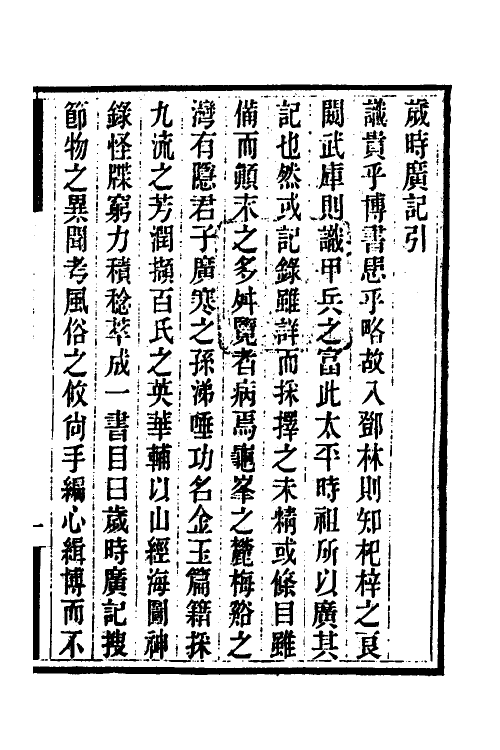 歲時廣記引
識貴乎博書患乎略故入鄧林則知杞梓之良
闖武庫則識甲兵之富此太平時祖所以廣其
記也然或記錄雖詳而採擇之未精或條目雖
備而顛末之多舛覽者病焉龜峯之麓梅谿之
灣有隱君子廣寒之孫涕唾功名金玉篇籍採
九流之芳潤擷百氏之英華輔以山經海圖神
錄怪牒窮力積稔萃成一書目曰歲時廣記搜
節物之異聞考風俗之攸尚手編心緝博而不